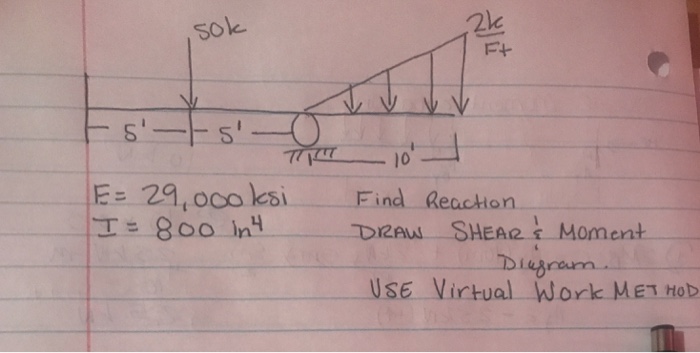 50k
2k
Ft
5' 5' 10'
E = 29,000 ksi Find Reaction
I = 800 in⁴ DRAW SHEAR & Moment
Diagram.
USE Virtual Work METHOD